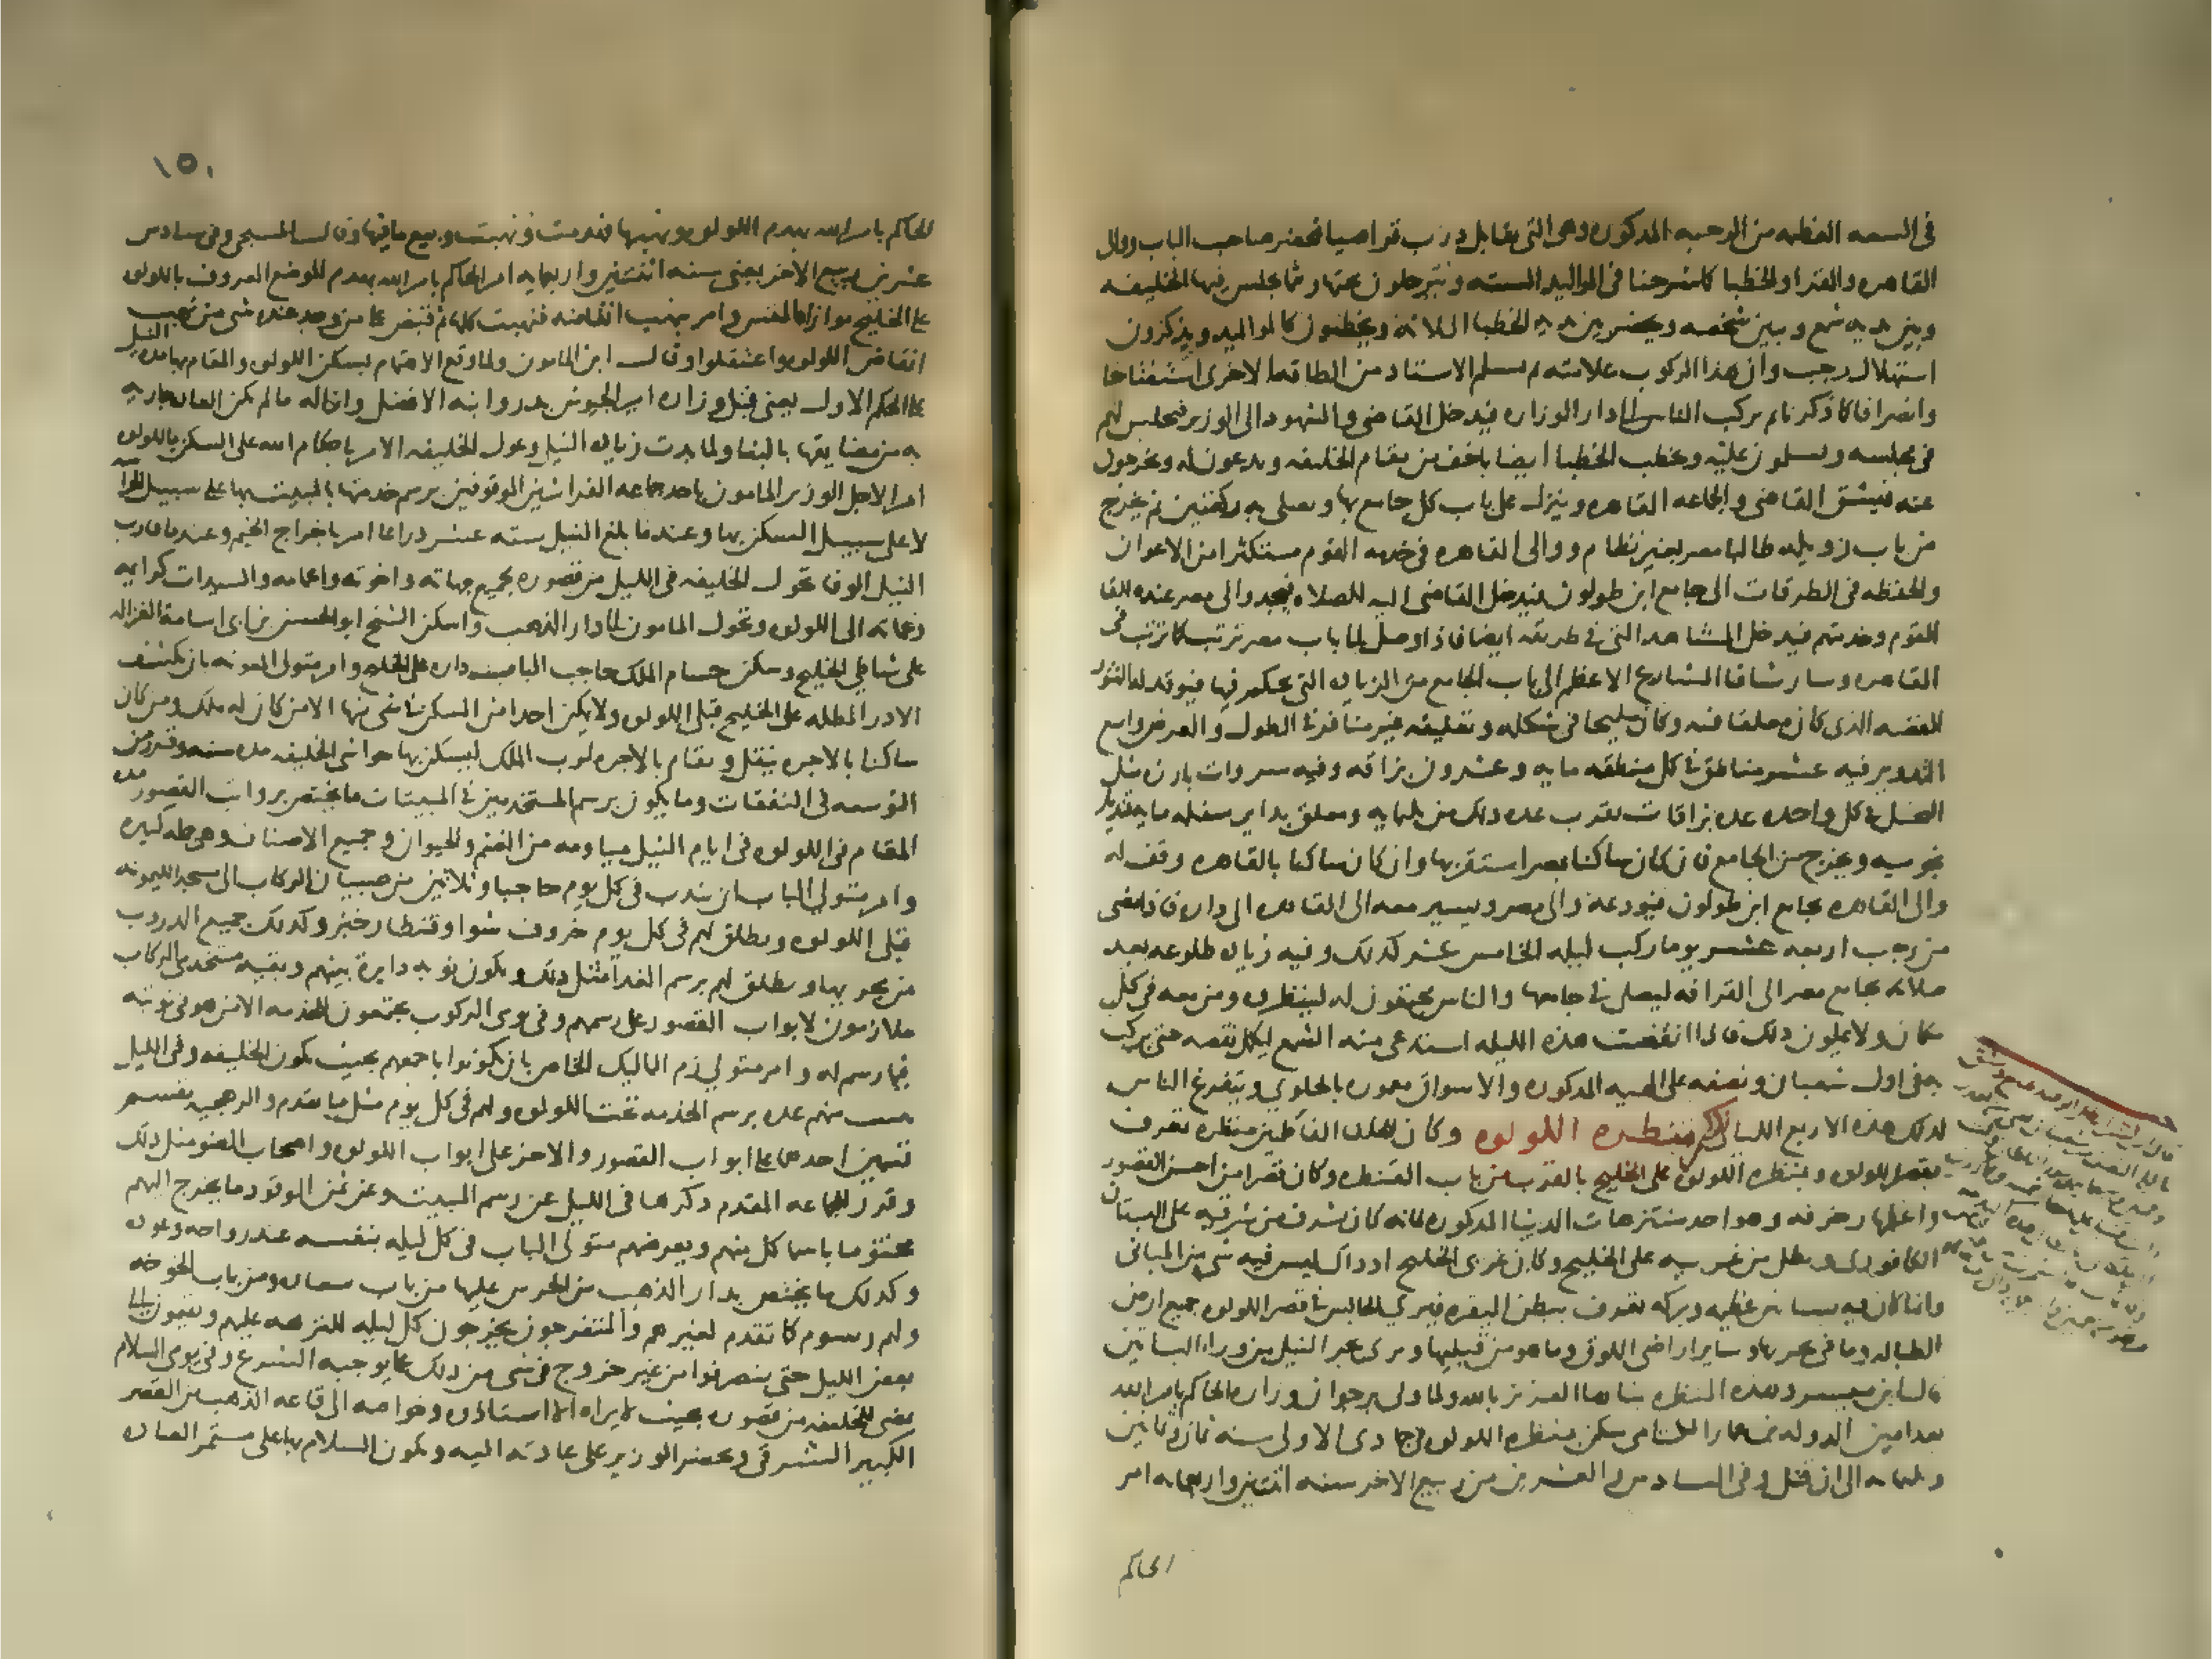 في السعه العظيمه من الرحبه المذكوره وهي التي تقابل درب قراصيا فيحضر صاحب الباب ووالى
القاهره والقرا والخطبا كما شرحنا في المواليد السته ويترجلون تحتها ريثما يجلس فيها الخليفه
وبين يديه شمع وبين شخصه ويحضر بين يديه الخطبا الثلاثه ويخطبون كالمواليد ويذكرون
استهلال رجب وان هذا الركوب علامته ثم يسلم الاستاد من الطاقه الاخرى استفتاحا
وانصرافا كما ذكرنا ثم يركب الناس الى دار الوزاره فيدخل القاضي والشهود الى الوزير فيجلس لهم
في مجلسه ويسلمون عليه ويخطب الخطبا ايضا باخف من مقام الخليفه ويدعون له ويخرجون
عنه فيشق القاضي والجماعه القاهره وينزل على باب كل جامع بها ويصلى به ركعتين ثم يخرج
من باب زويله طالبا مصر بغير نظام ووالى القاهره في خدمه القوم مستكثرا من الاعوان
والحفظه في الطرقات الى جامع ابن طولون فيدخل القاضي اليه للصلاه فيجد والى مصر عنده للقا
القوم وخدمتهم فيدخل المشاهد التي في طريقه ايضا فاذا وصل الى باب مصر ترتب كما ترتب في
القاهره وسار شاقا الشارع الاعظم الى باب الجامع من الزياده التي يحكم فيها فيوقد له التنور
الفضه الذي كان معلقا فيه وكان مليحا في شكله وتعليقه غير منافر في الطول والعرض واسع
التدوير فيه عشر مناطق في كل منطقه مايه وعشرون بزاقه وفيه سروات بارزه مثل
النخل في كل واحده عده بزاقات تقرب عده ذلك من ثلثمايه ومعلق بداير سفله مايه قنديل
نجوميه ويخرج من الجامع فان كان ساكنا بمصر استقر بها وان كان ساكنا بالقاهره وقف له
والى القاهره بجامع ابن طولون فيودعه والى مصر ويسير معه الى القاهره الى داره فاذا مضى
من رجب اربعه عشر يوما ركب ليله الخامس عشر كذلك وفيه زياده طلوعه بعد
صلاته بجامع مصر الى القرافه ليصلى في جامعها والناس يجتمعون له لينظروه ومن معه في كل
مكان ولا يملون ذلك فاذا انقضت هذه الليله استدعى منه الشمع ليكمل نقصه حتى يركب
به في اول شعبان ونصفه على الهيه المذكوره والاسواق معموره بالحلوى ويتفرغ الناس
لذلك هذه الاربع الليالي ذكر منظره اللولوه وكان للخلفا الفاطميين منظره تعرف
بقصر اللولوه وبمنظره اللولوه على الخليج بالقرب من باب القنطره وكان قصرا من احسن القصور
واعظمها زخرفه وهو احد منتزهات الدنيا المذكوره فانه كان يشرف من شرقيه على البستان
الكافوري ويطل من غربيه على الخليج وكان غربي الخليج اذ ذاك ليس فيه شي من المباني
وانما كان فيه بساتين عظيمه وبركه تعرف ببطن البقره فيرى الجالس في قصر اللولوه جميع ارض
الطباله وما في بحريها وساير اراضي اللوق وما هو من قبليها ويرى بحر النيل من ورا البساتين
قال ابن ميسر وهذه المنظره بناها العزيز بالله ولما ولى برجوان وزاره الحاكم بامر الله
بعد امين الدوله بن عمار الكتامى سكن بمنظره اللولوه في جمادى الاولى سنه ثمان وثمانين
وثلثمايه الى ان قتل وفي السادس والعشرين من ربيع الاخر سنه اثنتين واربعمايه امر
الحاكم
١٥٠
الحاكم بامر الله بهدم اللولوه ونهبها فهدمت ونهبت وبيع ما فيها وقال المسبحي وفي سادس
عشرين ربيع الاخر يعني سنه اثنتين واربعمايه امر الحاكم بامر الله بهدم الموضع المعروف باللولوه
على الخليج موازاه المقس وامر بنهب انقاضه فنهبت كلها ثم قبض على من وجد عنده شي من نهب
انقاض اللولوه واعتقلوا وقال ابن المامون ولما وقع الاهتمام بسكن اللولوه والمقام بها مده النيل
على الحكم الاول يعني قبل وزاره امير الجيوش بدر وابنه الافضل وازاله ما لم تكن العاده جاريه
به من مضايقتها بالبنا ولما بدت زياده النيل وعول الخليفه الامر باحكام الله على السكن باللولوه
امر الاجل الوزير المامون باخذ جماعه الفراشين الموقوفين برسم خدمتها بالمبيت بها على سبيل الحراسه
لا على سبيل السكن بها وعندما بلغ النيل سته عشر دراعا امر باخراج الخيم وعندما قارب
النيل الوفا تحول الخليفه في الليل من قصوره بجميع جهاته واخوته واعمامه والسيدات كرايمه
وعماته الى اللولوه وتحول المامون الى دار الذهب واسكن الشيخ ابو الحسن بن ابي اسامه الغزاله
على شاطى الخليج وسكن حسام الملك حاجب الباب داره على الخليج وامر متولى المعونه بان يكشف
الادر المطله على الخليج قبلى اللولوه ولا يمكن احدا من السكن في شي منها الا من كان له ملك ومن كان
ساكنا بالاجره ينقل ويقام بالاجره لرب الملك ليسكن بها حواشي الخليفه مده سنه وقرر من
التوسعه في النفقات وما يكون برسم المستخدمين في المبيتات ما يختص برواتب القصور مده
المقام في اللولوه في ايام النيل مياومه من الغنم والحيوان وجميع الاصناف وهي جمله كبيره
وامر متولي الباب ان يندب في كل يوم حاجبا وثلاثين من صبيان الركاب الى مسجد الليمونه
قبلى اللولوه ويطلق لهم في كل يوم خروف شوا وقنطار خبز وكذلك جميع الدروب
من بحريها ويطلق لهم برسم الغدا مثل ذلك ويكون نوبه دايرة بينهم وبقيه مستخدمي الركاب
ملازمون لابواب القصور على رسمهم وفي يومي الركوب يجتمعون للخدمه الا من هو في نوبته
فيما رسم له وامر متولي زم المماليك الخاص بان يكونوا باجمعهم بحيث يكون الخليفه وفي الليل
يبيت منهم عده برسم الخدمه تحت اللولوه ولهم في كل يوم مثل ما تقدم والرهجيه تقسم
قسمين احدهما على ابواب القصور والاخر على ابواب اللولوه واصحاب الضو مثل ذلك
وقدر للجماعه المقدم ذكرها في الليل عن رسم المبيت وعن ثمن الوقود ما يخرج اليهم
مختوما باسما كل منهم ويعرضهم متولى الباب في كل ليله بنفسه عند رواحه وعوده
وكذلك ما يختص بدار الذهب من الحرس عليها من باب سعاده ومن باب الخوخه
ولهم رسوم كما تقدم لغيرهم والمتفرجون يخرجون كل ليله للنزهه عليهم ويقيمون الى
بعض الليل حتى ينصرفوا من غير خروج في شي من ذلك عما يوجبه الشرع وفي يومي السلام
يمضي الخليفه من قصوره بحيث لا يراه الا استاذوه وخواصه الى قاعه الذهب من القصر
الكبير الشرقي ويحضر الوزير على عادته اليه ويكون السلام بها على مستمر العاده